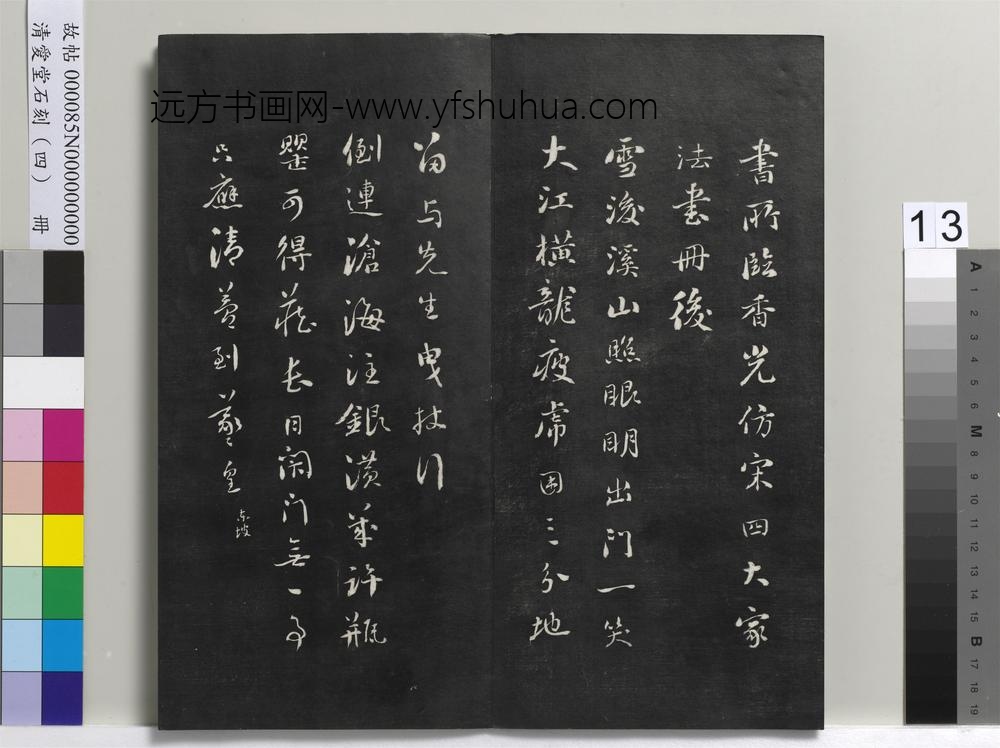 远方书画网-www.yfshuhua.com
書所臨香光仿宋四大家
法書冊後
雪後溪山照眼明出门一笑
大江橫龍疲虎困三分地
留与先生曳杖行
倒連滄海注銀潢幾許瓶
罌可得藏長日閑门無一事
只應清夢到羲皇 東坡
故帖 000085N000000000
清愛堂石刻（四） 冊
13
A
1
2
3
4
5
6
M
8
9
10
11
12
13
14
15
B
17
18
19